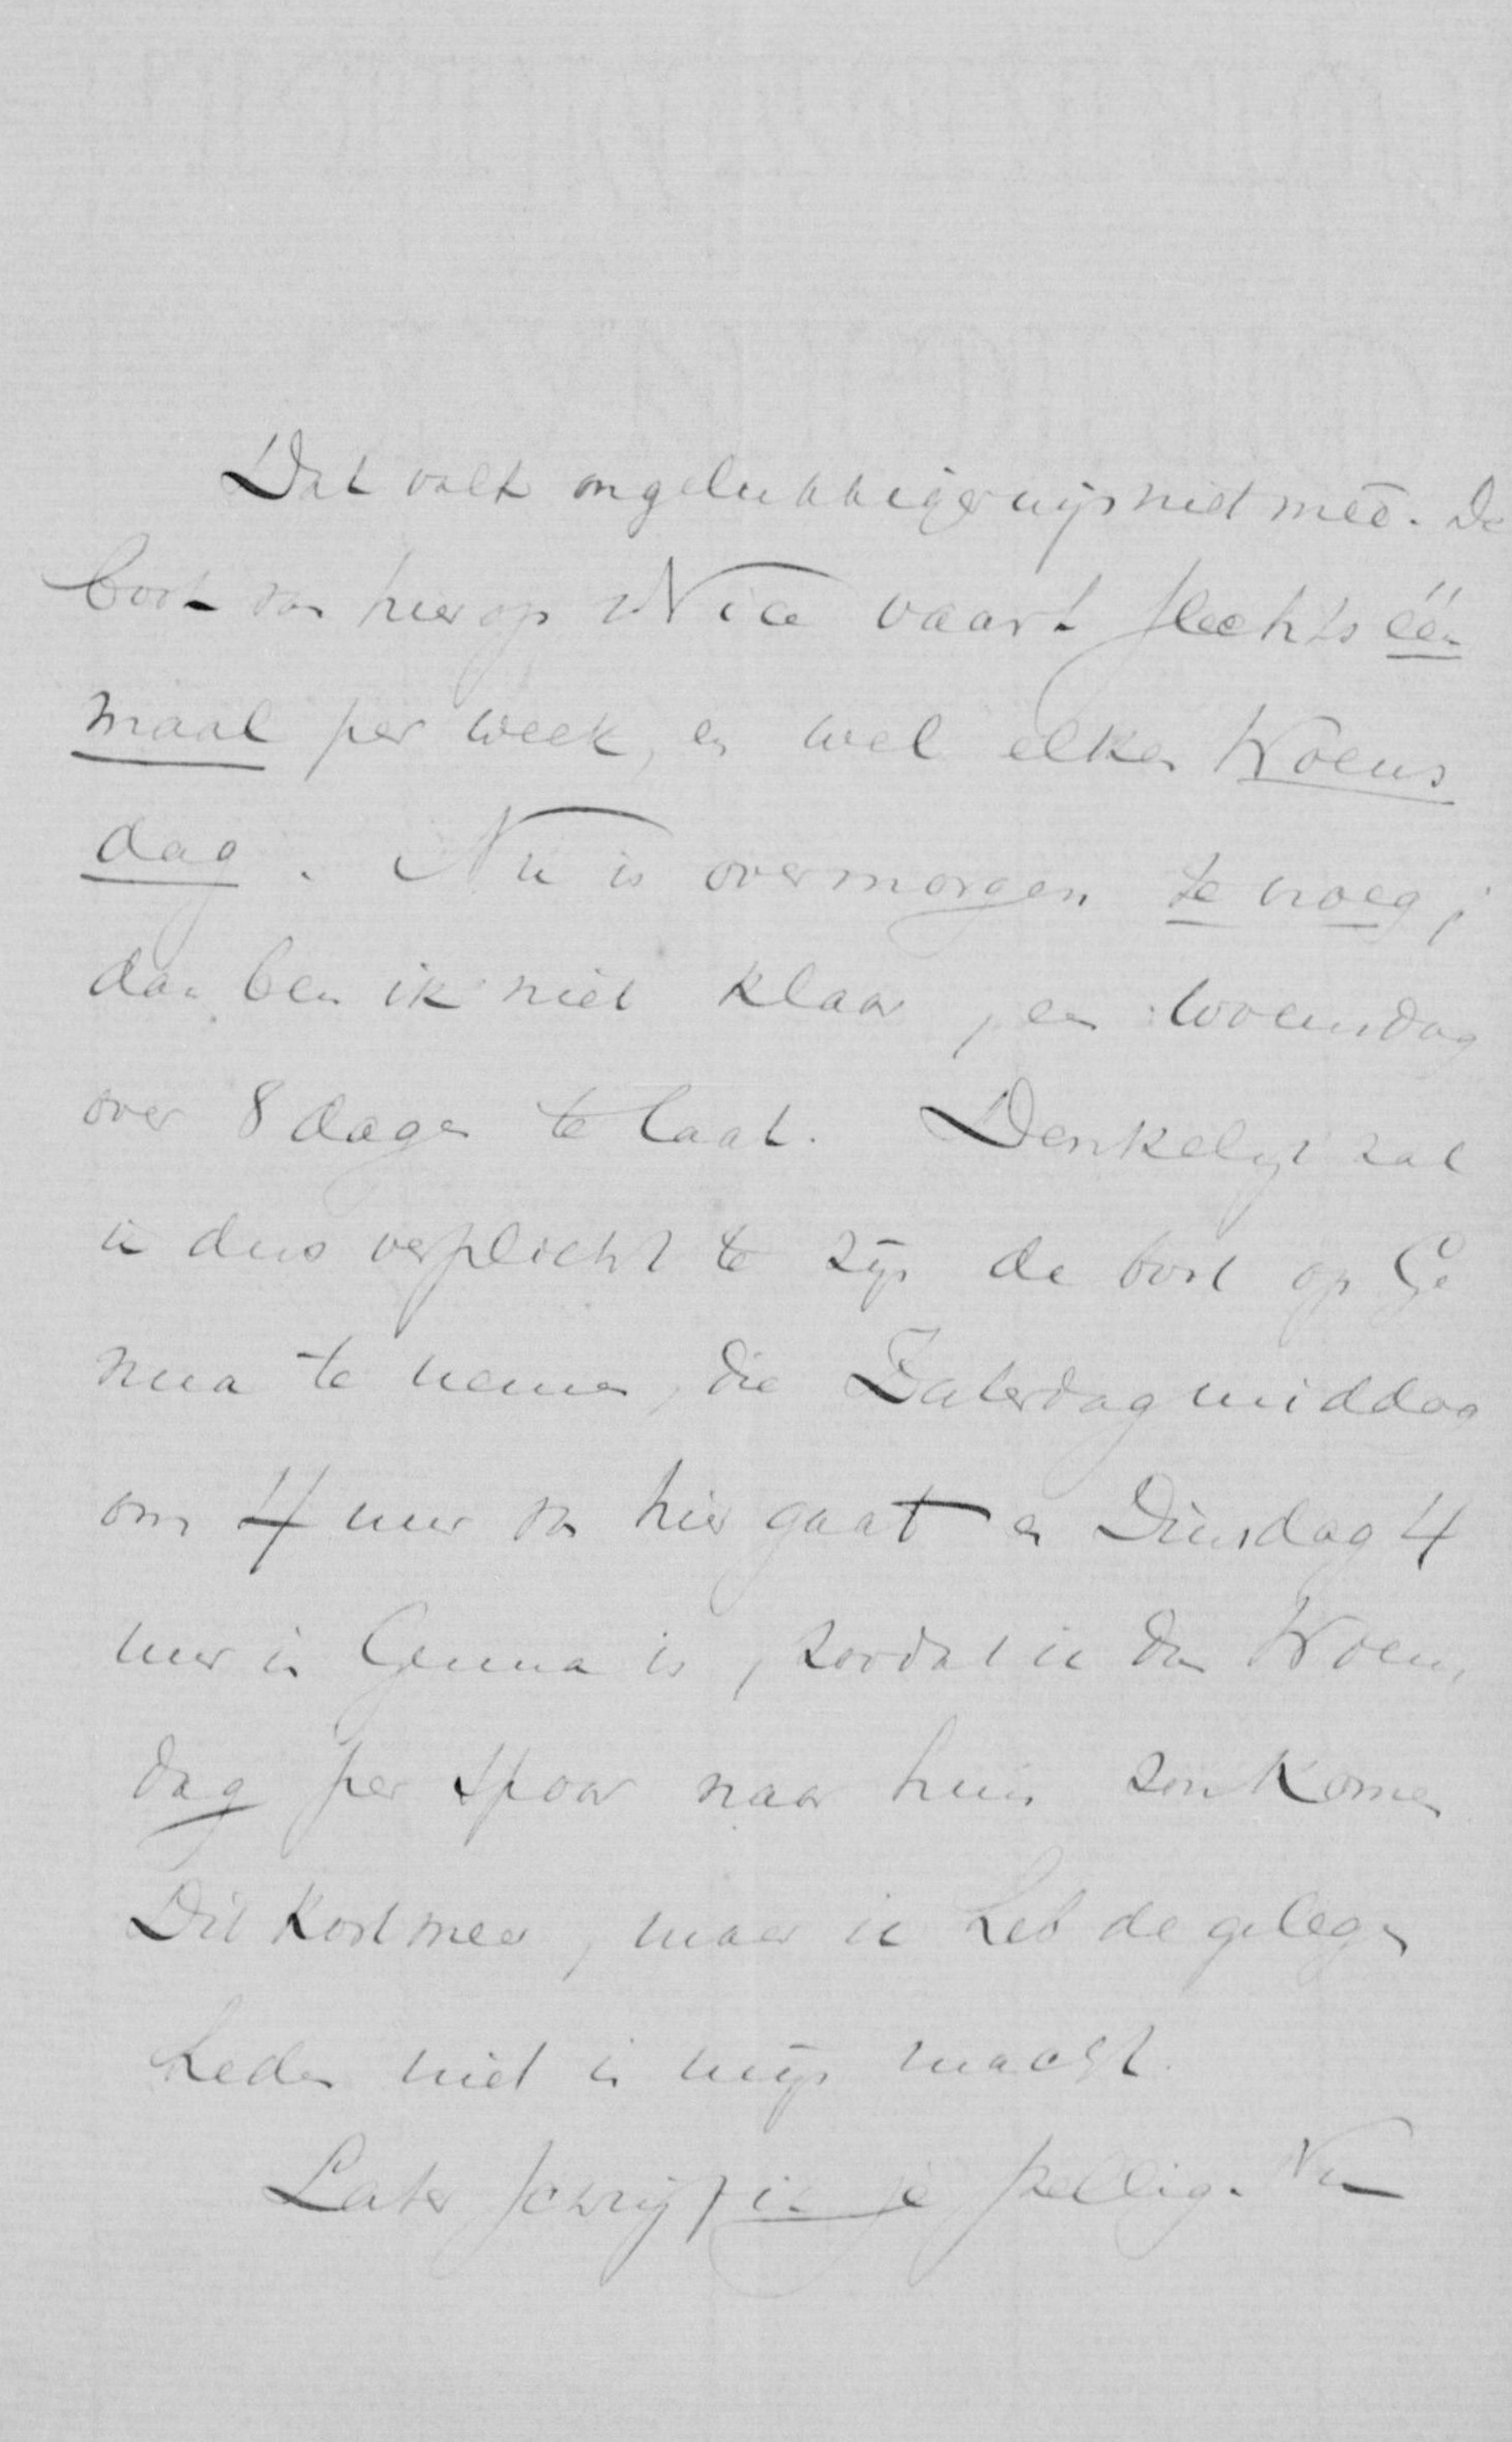 Dat valt ongelukkigerwijs niet meê. De
boot van hier op Nice vaart slechts één
maal per week, en wel elken Woens
dag. Nu is overmorgen te vroeg;
dan ben ik niet klaar, en woensdag
over 8 dagen te laat. Denkelijk zal
ik dus verplicht te zijn de boot op Ge
nua te nemen, die Zaterdagmiddag
om 4 uur van hier gaat en Dinsdag 4
uur in Genua is, zoodat ik dan Woens
dag per spoor naar huis zou komen
Dit kost meer, maar ik heb de gelegen
heden niet in mijn macht.
Later schrijf ik je stellig. Nu